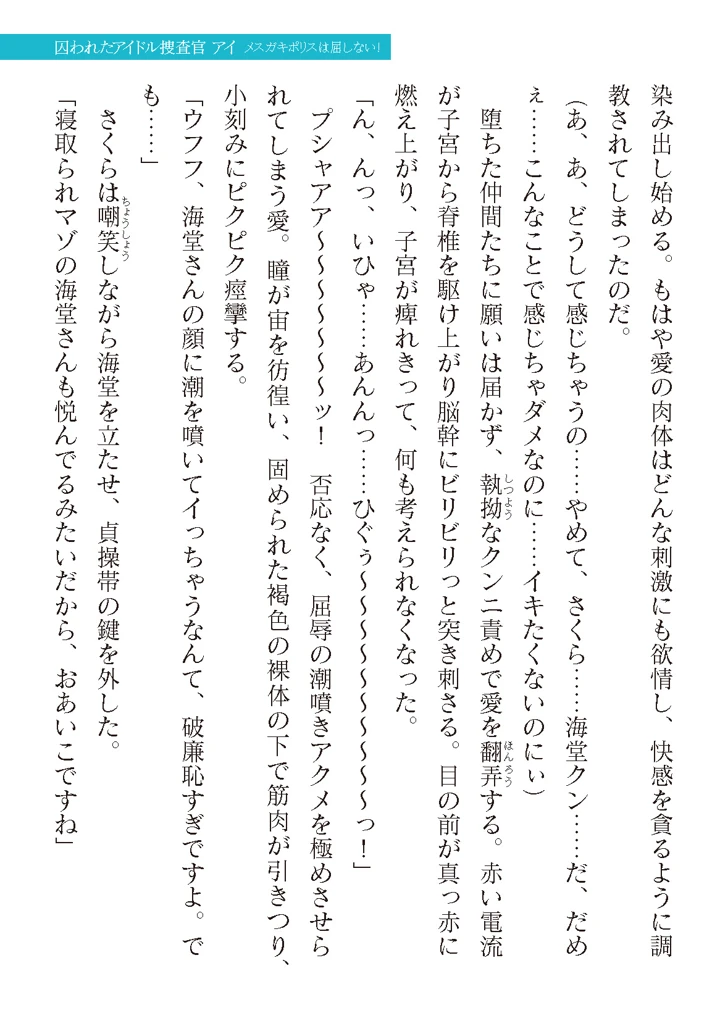 囚われたアイドル捜査官 アイ メスガキポリスは屈しない!
染み出し始める。もはや愛の肉体はどんな刺激にも欲情し、快感を貪るように調
教されてしまったのだ。
(あ、あ、どうして感じちゃうの……やめて、さくら……海堂クン……だ、だめ
ぇ……こんなことで感じちゃダメなのに……イキたくないのにぃ)
しつよう ほんろう
堕ちた仲間たちに願いは届かず、執拗なクンニ責めで愛を翻弄する。赤い電流
が子宮から脊椎を駆け上がり脳幹にビリビリっと突き刺さる。目の前が真っ赤に
燃え上がり、子宮が痺れきって、何も考えられなくなった。
「ん、んっ、いひゃ……あんんっ……ひぐぅ〜〜〜〜〜〜〜〜〜〜っ!」
プシャアア〜〜〜〜〜〜ッ! 否応なく、屈辱の潮噴きアクメを極めさせら
れてしまう愛。瞳が宙を彷徨い、固められた褐色の裸体の下で筋肉が引きつり、
小刻みにピクピク痙攣する。
「ウフフ、海堂さんの顔に潮を噴いてイっちゃうなんて、破廉恥すぎですよ。で
も……」
ちょうしょう
さくらは嘲笑しながら海堂を立たせ、貞操帯の鍵を外した。
「寝取られマゾの海堂さんも悦んでるみたいだから、おあいこですね」